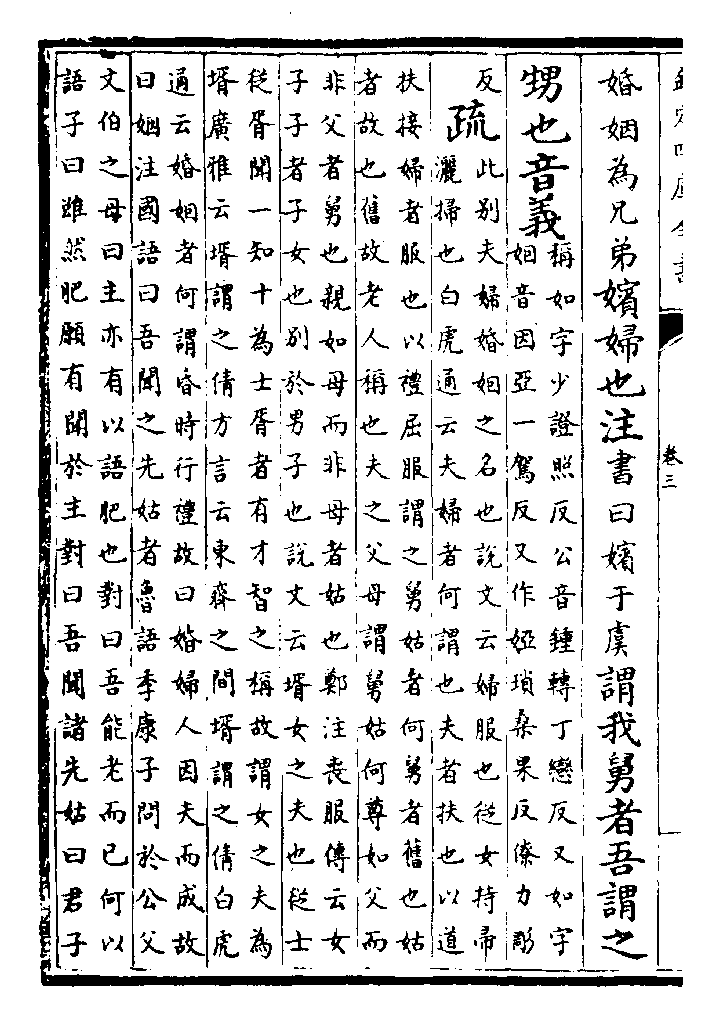 欽定四庫全書
卷三
婚姻為兄弟嬪婦也注書曰嬪于虞謂我舅者吾謂之
甥也音義
稱如字少證照反公音鍾轉丁戀反又如字
姻音因亞一駕反又作婭瑣桑果反僚力彫
反
疏
此別夫婦婚姻之名也說文云婦服也從女持帚
灑掃也白虎通云夫婦者何謂也夫者扶也以道
扶接婦者服也以禮屈服謂之舅姑者何舅者舊也姑
者故也舊故老人稱也夫之父母謂舅姑何尊如父而
非父者舅也親如母而非母者姑也鄭注喪服傳云女
子子者子女也別於男子也說文云壻女之夫也從士
從胥聞一知十為士胥者有才智之稱故謂女之夫為
壻廣雅云壻謂之倩方言云東齊之間壻謂之倩白虎
通云婚姻者何謂昏時行禮故曰婚婦人因夫而成故
曰姻注國語曰吾聞之先姑者魯語季康子問於公父
文伯之母曰主亦有以語肥也對曰吾能老而已何以
語子曰雖然肥願有聞於主對曰吾聞諸先姑曰君子